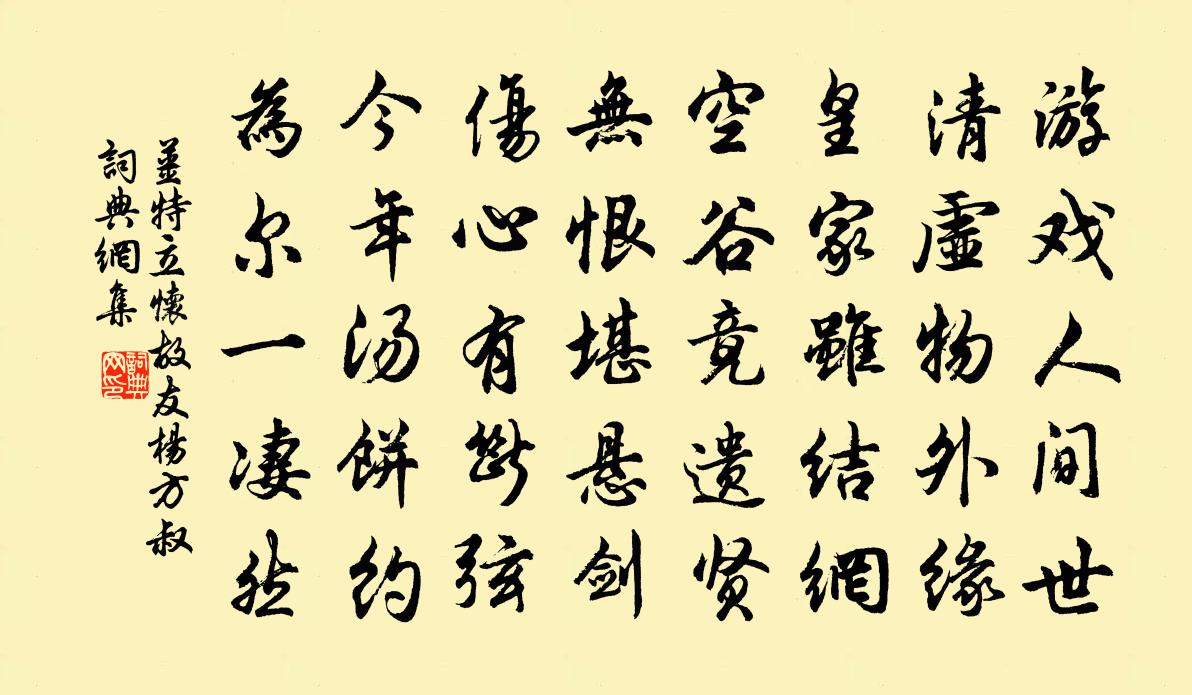 游戏人间世
清虚物外缘
皇家虽结網
空谷竟遗贤
無恨堪悬剑
傷心有断弦
今年汤餅约
為尔一凄然
姜特立懷故友楊方叔
詞典網集
詞典网印